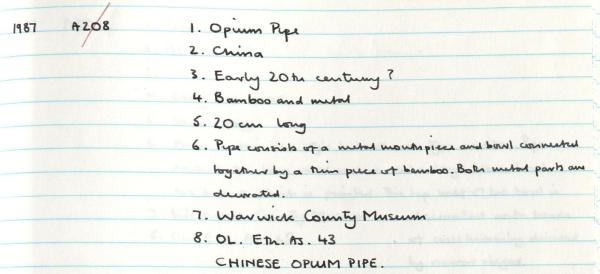 1987 A208 1. Opium Pipe
2. China
3. Early 20th century?
4. Bamboo and metal
5. 20 cm long
6. Pipe consists of a metal mouthpiece and bowl connected
together by a thin piece of bamboo. Both metal parts are
decorated.
7. Warwick County Museum
8. OL. Eth. As. 43
CHINESE OPIUM PIPE.